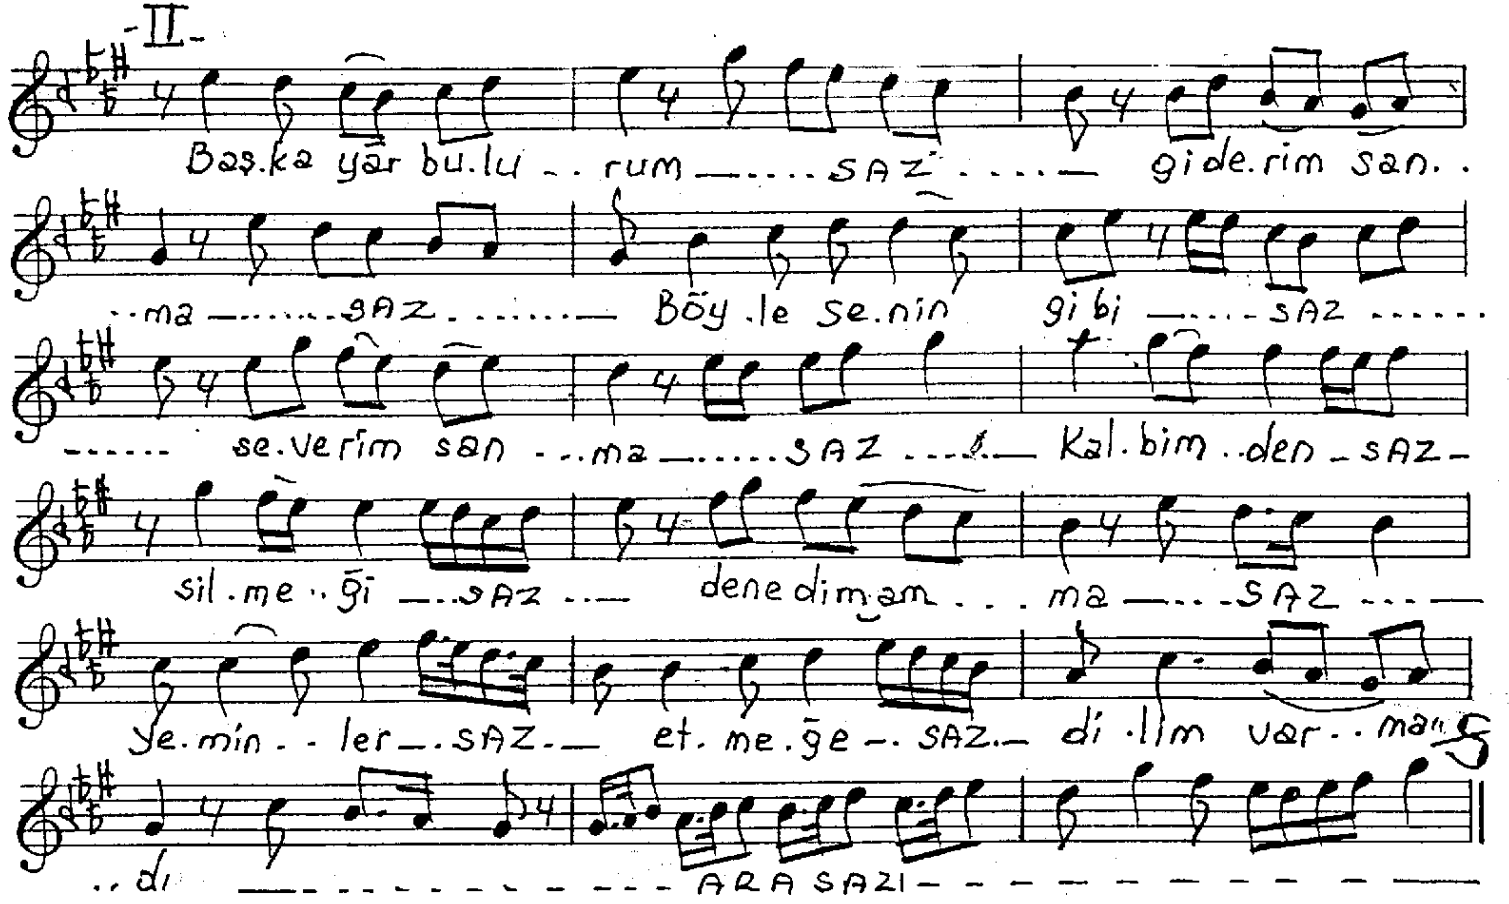 -II-
Baş.ka yâr bu.lu .. rum —..... SAZ .....— gide.rim san..
..ma —......SAZ.......— Böy.le se.nin gibi —.....SAZ......
...... se.verim san ...ma —.....SAZ.....— Kal.bim..den —SAZ—
sil.me..ği —...SAZ...— denedim am.... ma —....SAZ....—
ye.min..ler—.SAZ.— et.me.ğe—.SAZ.— di.lim var..ma..
..dı —————ARA SAZI—————